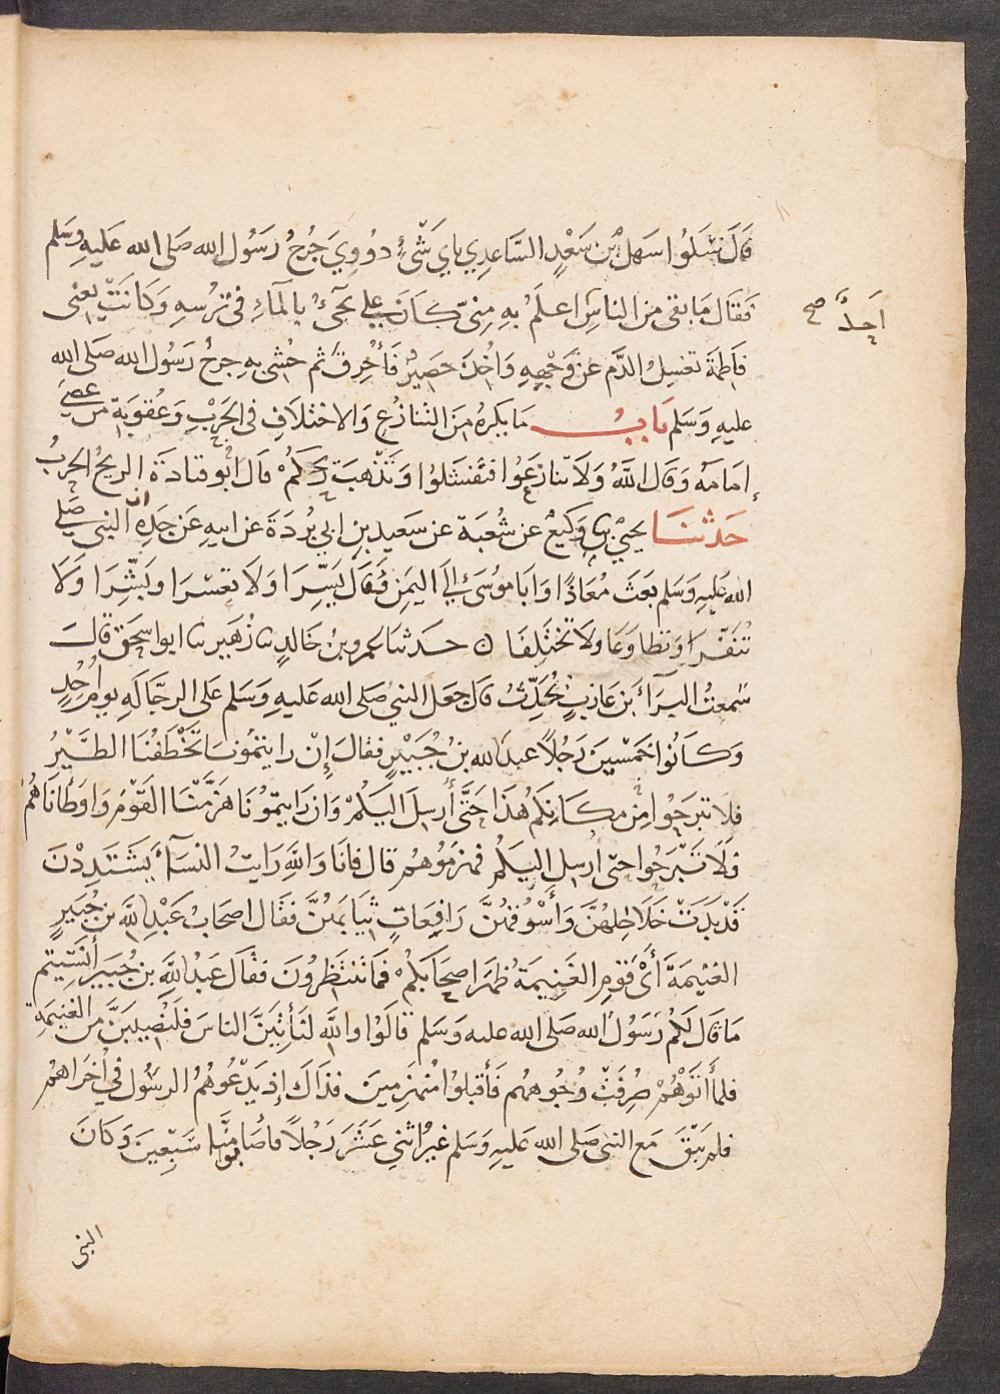 قَالَ سَٔلُوا سَهل بْن سَعْدٍ السَّاعِدِي باي شَىْءٍ دُووِيَ جُرحُ رَسُول الله صَلى الله عَليهِ وسَلم
فَقَال مَا بقى من الناسِ اعلَمُ بِهِ مِنىّ كَانَ علي يجىُٔ بالمآءِ فى تُرسِهِ وَكانَتْ يعنى
احدٌ صح
فَاطِمَة تغسِلُ الدَّم عَن وَجْههِ وَاُخِذَ حَصِيرٌ فَأُحْرِقَ ثم حُشى بهِ جرحُ رَسُول الله صَلى الله
عليهِ وَسَلم بَابُ مَا يكرهُ مِنَ التنازُعِ وَالاختلَافِ فى الحَرْبِ وَعُقوبَة من عصَى
إمَامَهُ وَقَال اللهُ وَلَا تنازعَوُا فتَفشَلوُا وَتَذْهبَ ريحكمْ قَال ابُو قتادَة الريحُ الحربُ
حَدثنَا يحيى ثنا وَكيعٌ عن شُعبَة عن سَعيد بنِ ابي بُردَةَ عن ابيهِ عَن جَدِه ان النبى صَلى
الله عَليهِ وَسَلم بَعَثَ مُعَاذًا وَابَا مُوسَى إلى اليَمنِ فقَال يَسِّرَا وَلَا تعسّرَا وَبَشِّرَا وَلَا
تُنَفِّرَا وَتطاوَعَا ولا تَختَلِفَا حدثنا عمرو بنُ خَالدٍ ثنا زُهَير ثنا ابو اسحَق قال
سَمعتُ البرَآءَ بَن عَازبٍ يُحَدِّثُ قَال جعَل النبىُ صَلى الله عَليهِ وَسَلم عَلى الرجَّالةِ يومَ اُحُدٍ
وَكانُوا خَمْسينَ رَجُلاً عبدَ الله بنُ جُبَيْرٍ فقالَ إِنْ رايتمُونا تَخْطَفُنَا الطَّيْرُ
فلا تبرَحُوا مِن مكانِكُم هٰذَا حَتَّى أُرسِلَ اليَكُمْ وَان رَايتمُونَا هَزَمْنَا القَوْمَ وَاوطَأنَاهُمْ
فَلَا تَبْرَحُوا حتى ارسِل اليَكُم فهزمَوُهُم قال فانَا وَاللهِ رَايتُ النسَآءَ يَشتَدِدْنَ
قَدْ بَدَتْ خَلَاخِلهُنَّ وَأَسْوُقهُنَّ رَافِعَاتٍ ثِيَابَهُنَّ فقَال اصحَابُ عَبْدِ اللهِ بن جُبَيرٍ
الغنِيمَةَ أَىْ قوْمِ الغَنِيمَةَ ظهَرَ اصحَابكُمْ فمَا تنتَظِرُونَ فقَال عَبدُ اللهِ بن جُبَيرٍ أَنَسِيتُم
مَا قَال لكُم رَسُولُ الله صَلى الله عليه وَسَلم قالَوُا واللهِ لنَأتِيَنَّ الناسَ فَلَنُصِيبَنَّ مِن الغنِيمَةِ
فلمَّا أَتَوْهُمْ صُرِفَتْ وُجُوههُم فَأقبَلوا مُنهَزِمِينَ فذاكَ إذ يَدْعُوهُمُ الرسُول فى اُخرَاهُم
فلم يَبْقَ مَع النبى صَلى الله عَليهِ وَسَلم غيرُ اثنى عَشَرَ رَجُلاً فاصَابُوا مِنَّا سَبْعِينَ وَكانَ
النبى